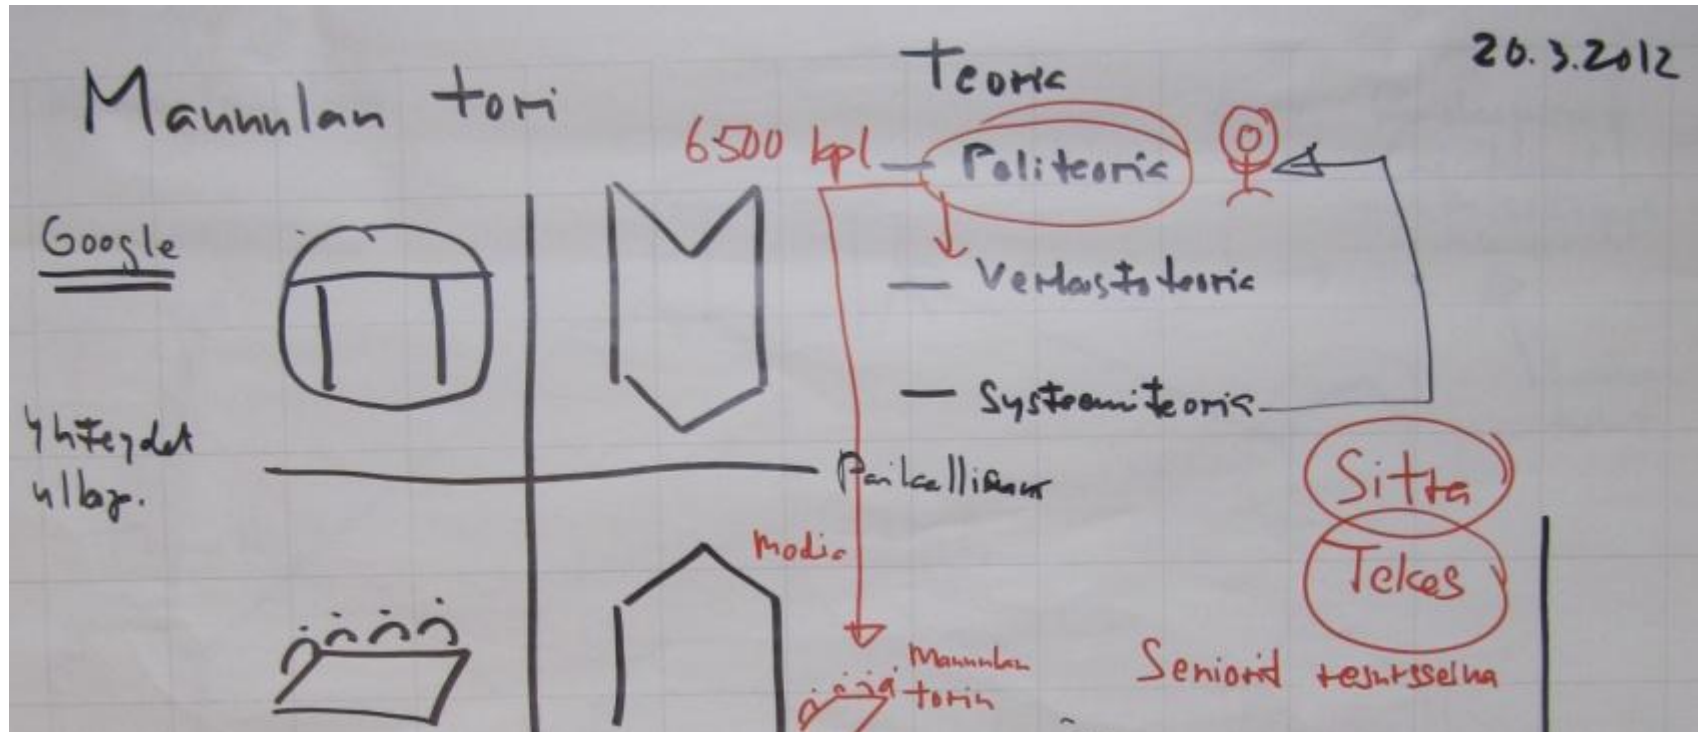 Maunulan tori
Teoria
20.3.2012
6500 kpl
– Politeoria
Google
– Verkostoteoria
– Systeemiteoria
Yhteydet
ulkop.
Paikallisuus
Sitra
Media
Tekes
Maunulan
torin
Seniorit resursseina